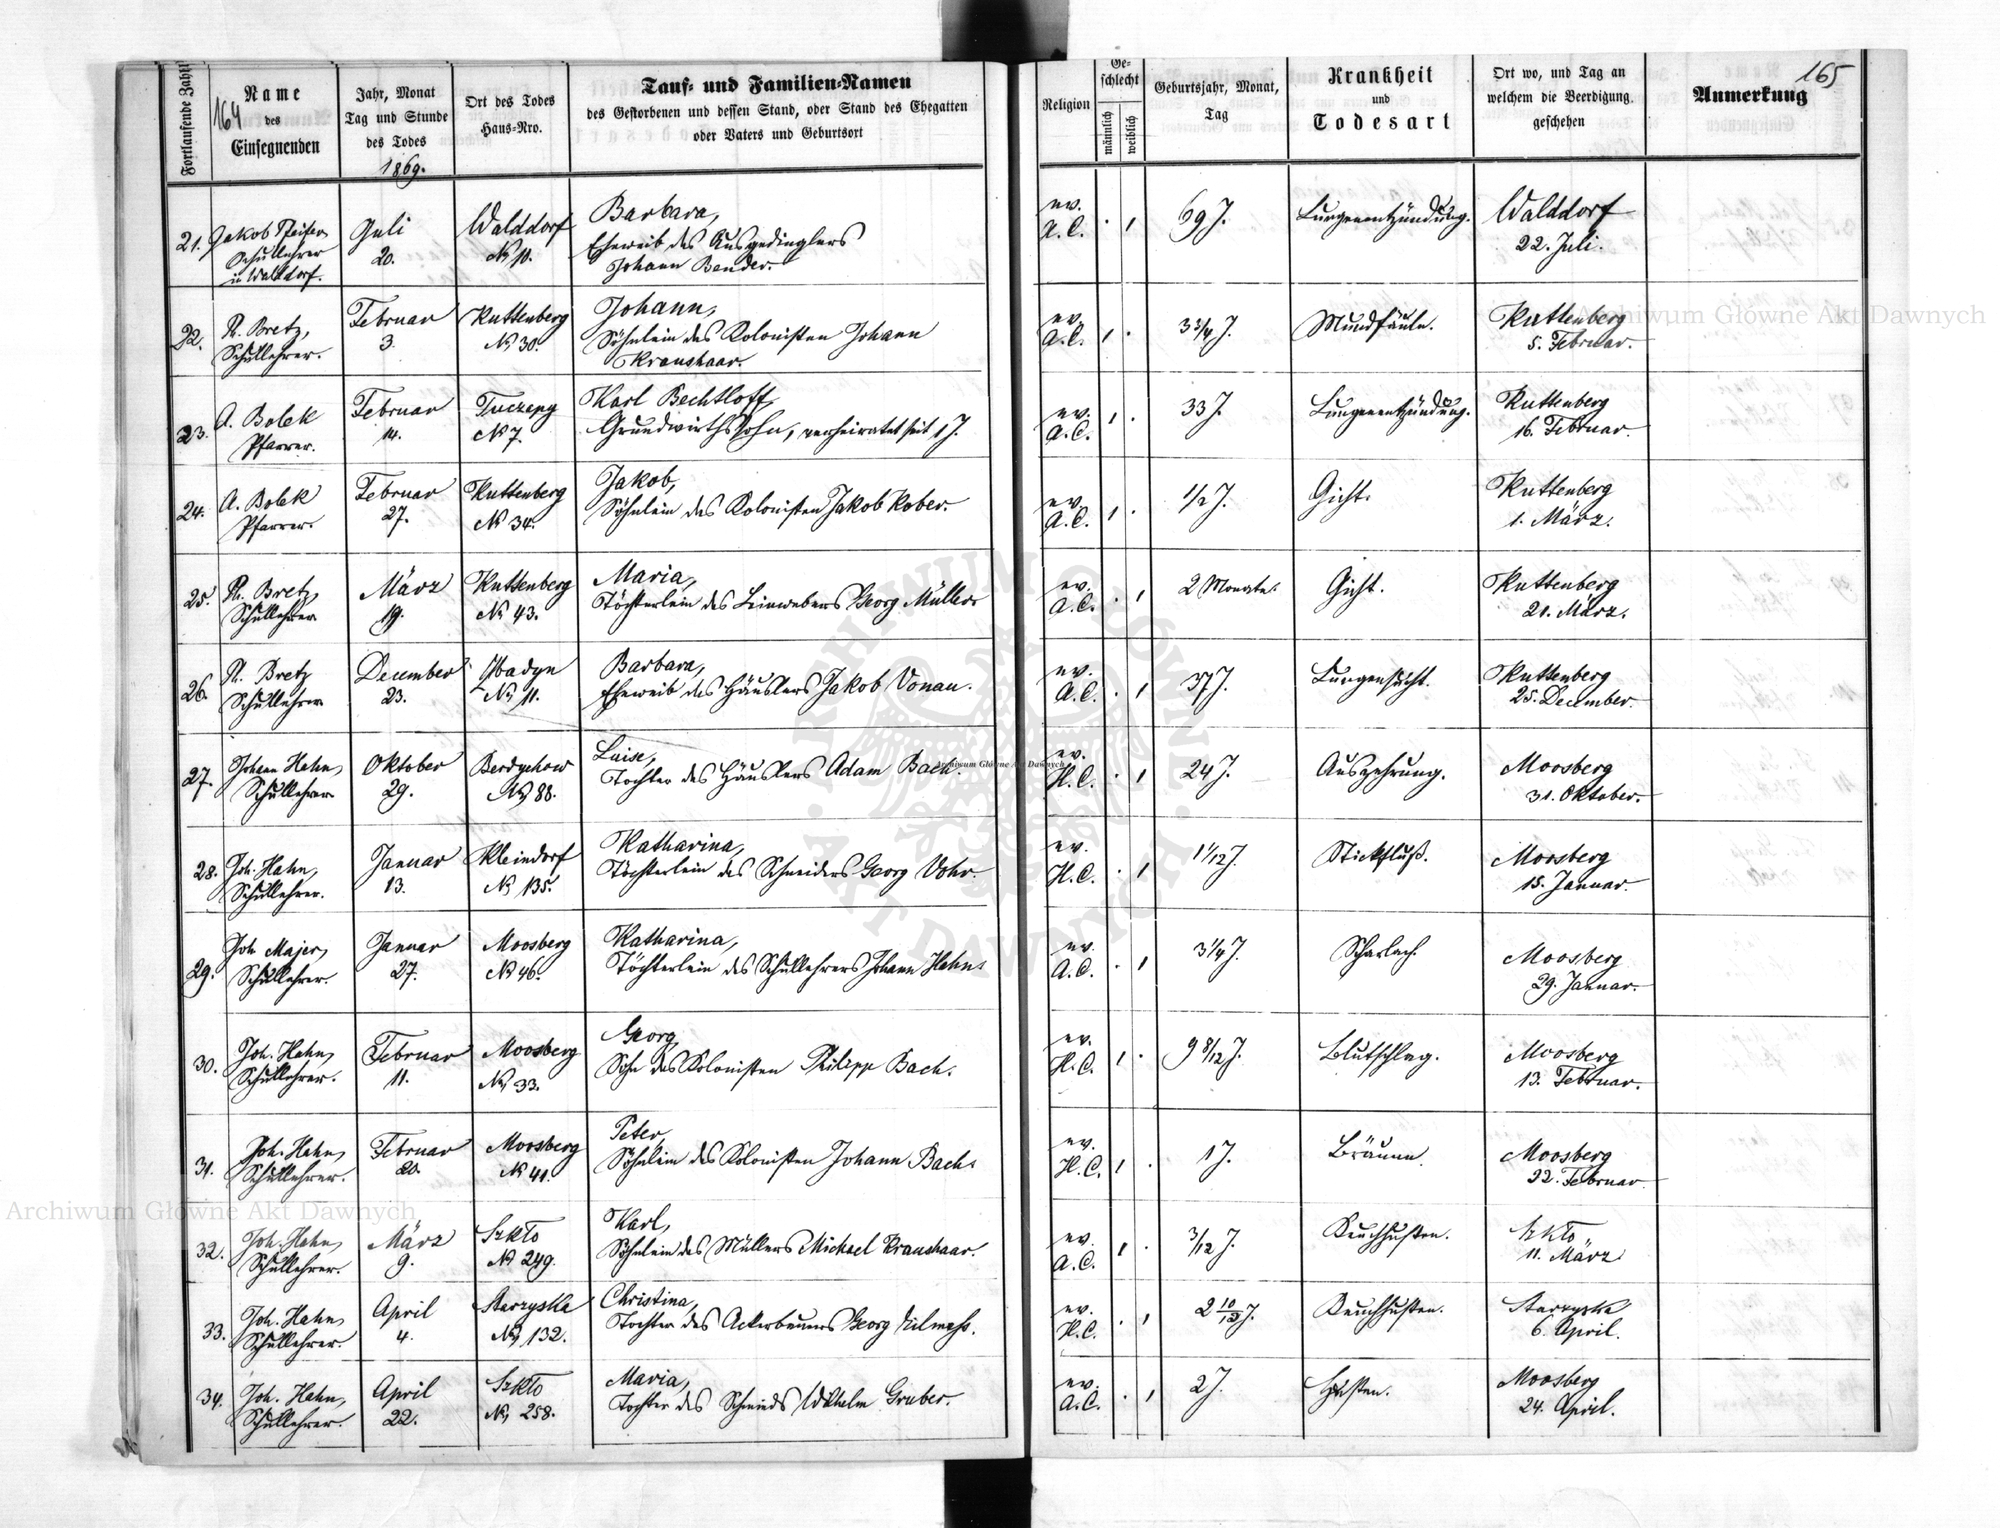 164
165
Fortlaufende Zahl
Name
des
Einsegnenden
Jahr, Monat
Tag und Stunde
des Todes
1869.
Ort des Todes
Haus-Nro.
Tauf- und Familien-Namen
des Gestorbenen und dessen Stand, oder Stand des Ehegatten
oder Vaters und Geburtsort
Religion
Ge-
schlecht
männlich
weiblich
Geburtsjahr, Monat,
Tag
Krankheit
und
Todesart
Ort wo, und Tag an
welchem die Beerdigung
geschehen
Anmerkung
21. Jakob Reifer Schullehrer in Walddorf. Juli 20. Walddorf № 11. Barbara,
Eheweib des Ausgedinglers
Johann Bender. ev. A.C. 69 J. Lungenentzündung. Walddorf 22. Juli.
22. R. Bretz, Schullehrer. Februar 3. Kuttenberg № 30. Johann,
Söhnlein des Kolonisten Johann
Kraushaar. ev. A.C. 3 3/4 J. Mundfäule. Kuttenberg 5. Februar.
23. A. Bolek Pfarrer. Februar 14. Tuczapy № 7. Karl Bechtloff,
Grundwirthssohn, verheiratet seit 1 J. ev. A.C. 33 J. Lungenentzündung. Kuttenberg 16. Februar.
24. A. Bolek Pfarrer. Februar 27. Kuttenberg № 34. Jakob,
Söhnlein des Kolonisten Jakob Kober. ev. A.C. 1/2 J. Gicht. Kuttenberg 1. März.
25. R. Bretz, Schullehrer März 19. Kuttenberg № 43. Maria,
Töchterlein des Leinwebers Georg Müller. ev. A.C. 2 Monate. Gicht. Kuttenberg 21. März.
26. R. Bretz Schullehrer December 23. № 11. Barbara,
Eheweib des Häuslers Jakob Vonau. ev. A.C. 37 J. Lungensucht. Kuttenberg 25. December.
27. Johann Hahn, Schullehrer Oktober 29. Berdychow № 88. Luise,
Tochter des Häuslers Adam Bach. ev. H.C. 24 J. Auszehrung. Moosberg 31. Oktober.
28. Joh. Hahn, Schullehrer. Januar 13. Kleindorf № 135. Katharina,
Töchterlein des Schneiders Georg Vohr. ev. H.C. 1 1/12 J. Stickfluß. Moosberg 15. Januar.
29. Joh. Majer, Schullehrer. Januar 27. Moosberg № 46. Katharina,
Töchterlein des Schullehrers Johann Hahn. ev. A.C. 3 1/4 J. Scharlach Moosberg 29. Januar.
30. Joh. Hahn, Schullehrer. Februar 11. Moosberg № 33. Georg
Sohn des Kolonisten Philipp Bach. ev. H.C. 9 8/12 J. Blutschlag. Moosberg 13. Februar.
31. Joh. Hahn, Schullehrer. Februar 20. Moosberg № 41. Peter,
Söhnlein des Kolonisten Johann Bach. ev. H.C. 1 J. Bräune. Moosberg 22. Februar
32. Joh. Hahn, Schullehrer. März 9. Szkło № 249. Karl,
Söhnlein des Müllers Michael Kraushaar. ev. A.C. 3/12 J. Keuchhusten. Szkło 11. März
33. Joh. Hahn, Schullehrer. April 4. Starzyska № 132. Christina,
Tochter des Ackerbauers Georg ev. H.C. 2 10/12 J. Keuchhusten. Starzyska 6. April.
34. Joh. Hahn, Schullehrer. April 22. Szkło № 258. Maria,
Tochter des Schmieds Wilhelm Gruber. ev. A.C. 2 J. Husten. Moosberg 24. April.
Archiwum Główne Akt Dawnych
Archiwum Główne Akt Dawnych
Archiwum Główne Akt Dawnych
ARCHIWUM GŁÓWNE · AKT DAWNYCH ·